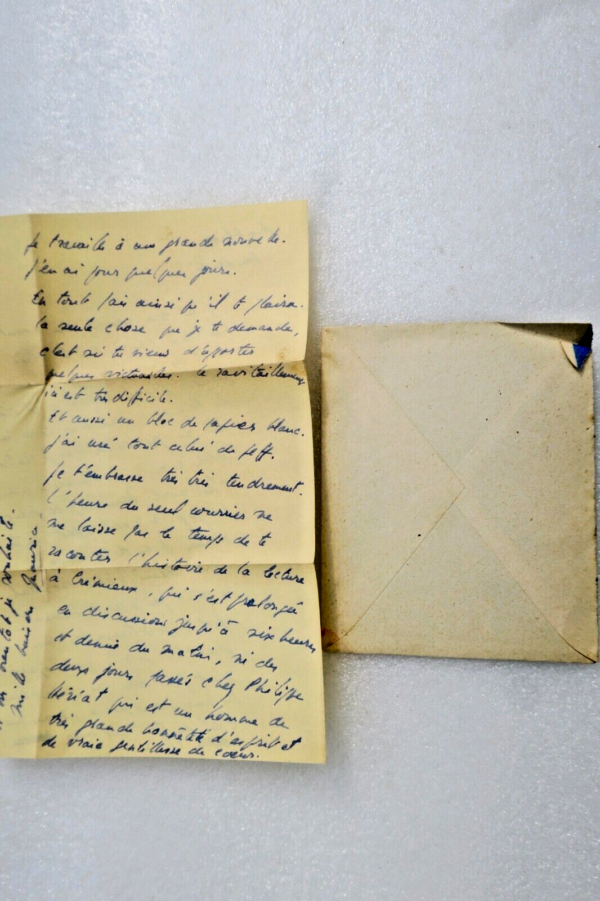 Je travaille à une grande nouvelle.
J'en ai pour quelques jours.
En tout fais ainsi qu'il te plaira.
La seule chose que je te demande,
c'est si tu viens d'apporter
quelques victuailles. Le ravitaillement
ici est très difficile.
Et aussi un bloc de papier blanc.
J'ai usé tout celui de Jeff.
Je t'embrasse très très tendrement.
L'heure du seul courrier ne
me laisse pas le temps de te
raconter l'histoire de la lecture
à Crémieux, qui s'est prolongée
en discussions jusqu'à six heures
et demie du matin, ni des
deux jours passés chez Philippe
Hériat qui est un homme de
très grande honnêteté d'esprit et
de vraie gentillesse de cœur.
bientôt je souhaite.
mille baisers Maurice